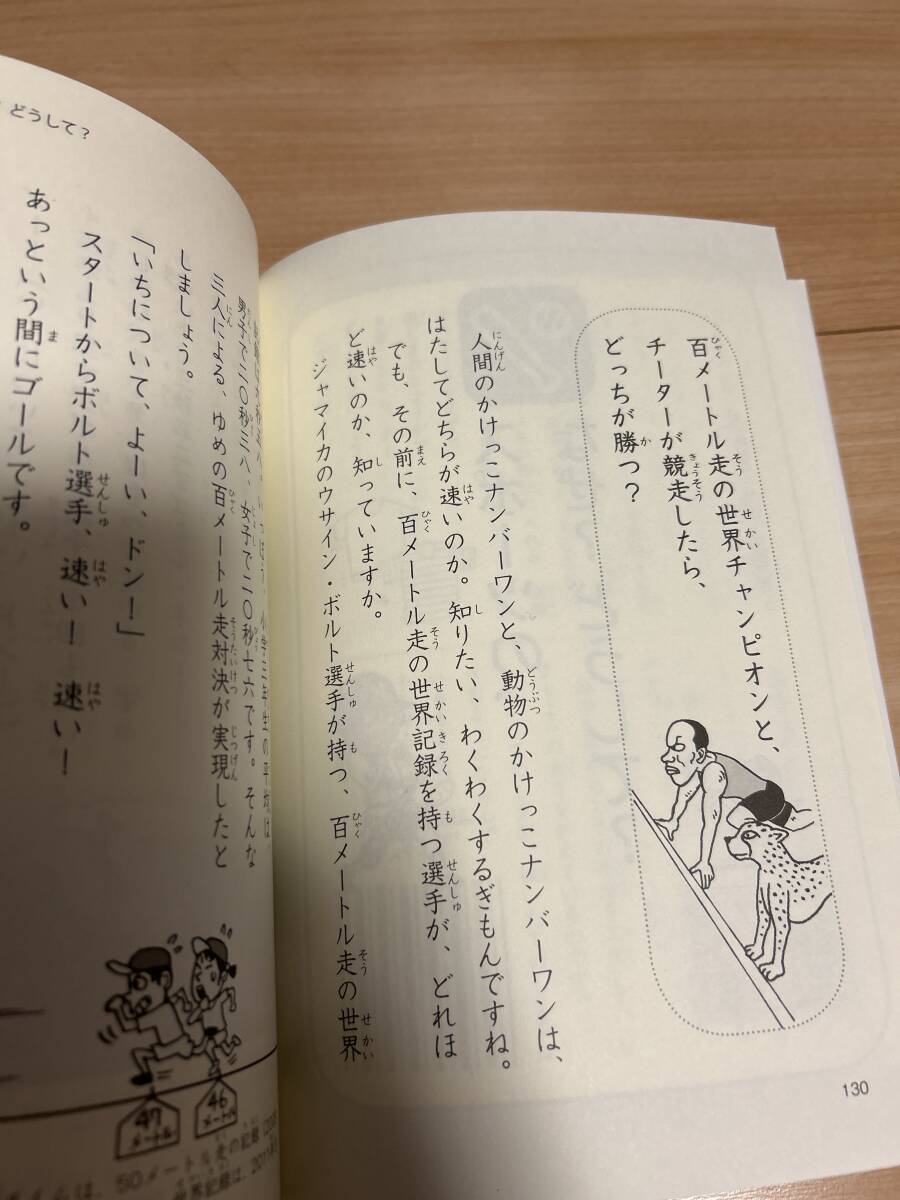 百メートル走の世界チャンピオンと、
チーターが競走したら、
どっちが勝つ？
人間のかけっこナンバーワンと、動物のかけっこナンバーワンは、
はたしてどちらが速いのか。知りたい、わくわくするぎもんですね。
でも、その前に、百メートル走の世界記録を持つ選手が、どれほ
ど速いのか、知っていますか。
ジャマイカのウサイン・ボルト選手が持つ、百メートル走の世界
130
どうして？
小学三年生の平均は、
男子で二〇秒三八、女子で二〇秒七六です。そんな
三人による、ゆめの百メートル走対決が実現したと
しましょう。
「いちについて、よーい、ドン！」
スタートからボルト選手、速い！　速い！
あっという間にゴールです。
46
メートル
47
メートル
は、50メートル走の記録
世界記録は、2011